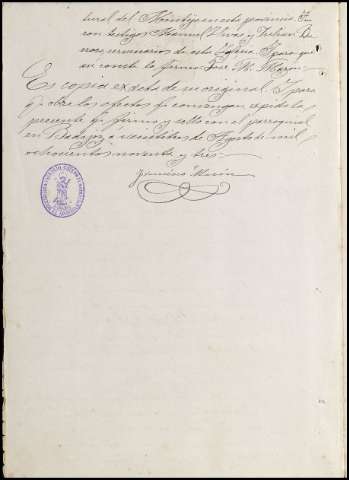 tural del Montijo esta provincia. Fue
ron testigos Manuel Vivas y Julian Be
nar ministros de esta Iglesia. Y para que
asi conste lo firmo = José M. Marin =
Es copia exacta de su original. Y para
q.e obre los efectos q.e convengan, expido la
presente q.e firmo y sello con el parroquial
en Badajoz á veintitres de Agosto de mil
ochocientos noventa y tres.
Marin